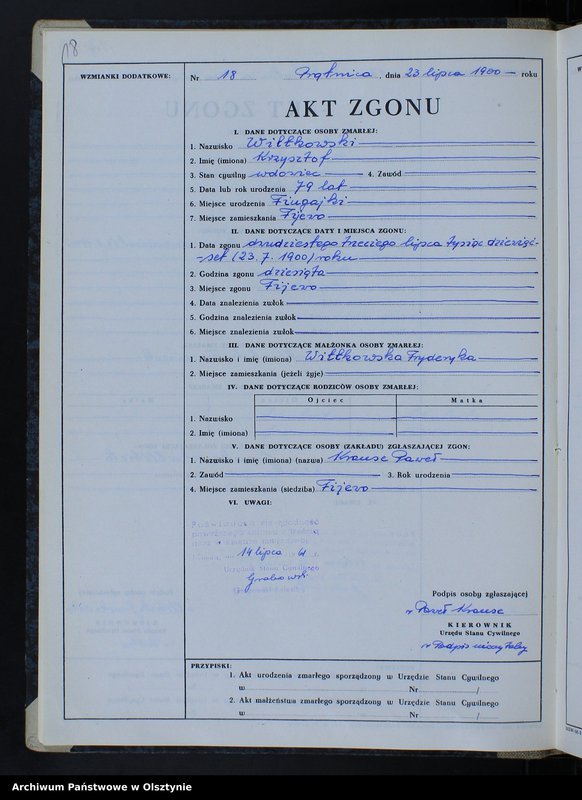 18
WZMIANKI DODATKOWE:
Nr 18 Frątnica, dnia 23 lipca 1900 — roku
AKT ZGONU
I. DANE DOTYCZĄCE OSOBY ZMARŁEJ:
1. Nazwisko Wiltkowski
2. Imię (imiona) Krzysztof
3. Stan cywilny wdowiec 4. Zawód
5. Data lub rok urodzenia 79 lat
6. Miejsce urodzenia Fingajki
7. Miejsce zamieszkania Fijewo
II. DANE DOTYCZĄCE DATY I MIEJSCA ZGONU:
1. Data zgonu dwudziestego trzeciego lipca tysiąc dziewięć-
-set (23. 7. 1900) roku
2. Godzina zgonu dziesiąta
3. Miejsce zgonu Fijewo
4. Data znalezienia zwłok
5. Godzina znalezienia zwłok
6. Miejsce znalezienia zwłok
III. DANE DOTYCZĄCE MAŁŻONKA OSOBY ZMARŁEJ:
1. Nazwisko i imię (imiona) Wiltkowska Fryderyka
2. Miejsce zamieszkania (jeżeli żyje)
IV. DANE DOTYCZĄCE RODZICÓW OSOBY ZMARŁEJ:
Ojciec Matka
1. Nazwisko
2. Imię (imiona)
V. DANE DOTYCZĄCE OSOBY (ZAKŁADU) ZGŁASZAJĄCEJ ZGON:
1. Nazwisko i imię (imiona) (nazwa) Krause Paweł
2. Zawód 3. Rok urodzenia
4. Miejsce zamieszkania (siedziba) Fijewo
VI. UWAGI:
Poświadcza się zgodność
14 lipca 61 r.
Urzędnik Stanu Cywilnego
Grabowski
Podpis osoby zgłaszającej
Paweł Krause
KIEROWNIK
Urzędu Stanu Cywilnego
Podpis nieczytelny
PRZYPISKI:
1. Akt urodzenia zmarłego sporządzony w Urzędzie Stanu Cywilnego
w Nr /
2. Akt małżeństwa zmarłego sporządzony w Urzędzie Stanu Cywilnego
w Nr /
Archiwum Państwowe w Olsztynie